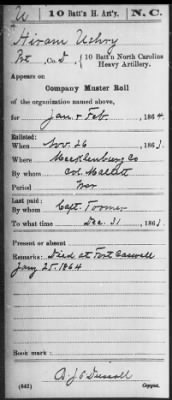 U 10 Batt'n H. Art'y. N.C.
Hiram Ushry
Pvt, Co. D, 10 Batt'n North Carolina
Heavy Artillery.
Appears on
Company Muster Roll
of the organization named above,
for Jan & Feb, 1864.
Enlisted:
When Nov. 26, 1863.
Where Mecklenburg Co
By whom Col. Mallett
Period War
Last paid:
By whom Capt. Toomer
To what time Dec. 31, 1863.
Present or absent
Remarks: Died at Fort Caswell
Jany 25. 1864
Book mark:
(642) Copyist.